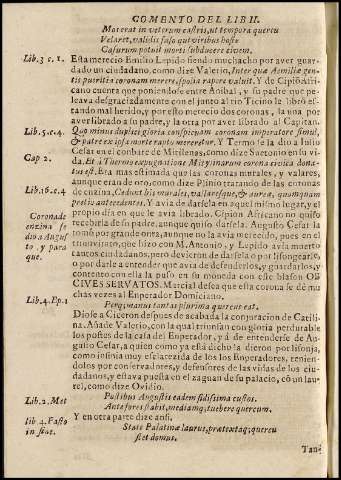 COMENTO DEL LIB II.
Mos erat in veterum castris, ut tempora quercu
Velaret, validis fuso qui viribus hoste
Casurum potuit morti subducere civem.
Lib. 3 c. 1.
Esta merecio Emilio Lepido siendo muchacho por aver guardado
un ciudadano, como dize Valerio, Inter quæ Aemilie gentis
pueritia coronam merere, spolia rapere valuit. Y de Cipiō Africano
cuenta que poniendose entre Anibal, y su padre que peleava
desgraciadamente con el junto al rio Ticino le libró estando
mal herido, y por esto merecio dos coronas, la una por
aver librado a su padre, y la otra por aver librado al Capitan.
Lib. 5. c. 4.
Quo minus duplici gloria conspicuam coronam imperatore simul,
& patre ex ipsa morte rapto mereretur. Y Termo se la dio a Iulio
Cesar en el combate de Mitilenas, como dize Suetonio en su vida.
Cap 2.
Et à Thermo expugnatione Mitylinarum corona civica donatus
est. Era mas estimada que las coronas murales, y valares,
aunque eran de oro, como dize Plinio tratando de las coronas
Lib. 16. c. 4
de enzina, Cedunt his murales, vallaresque, & aureæ, quamquam
pretio antecedentes. Y avia de darsela en aquel mismo lugar, y el
propio dia en que le avia librado. Cipion Africano no quiso
recebirla de su padre, aunque quiso darsela. Augusto Cesar la
Corona de enzina se dio a Augusto, y para que.
tomò por grande onra, aunque no la avia merecido, pues en el
triunvirato, que hizo con M. Antonio, y Lepido avia muerto
tantos ciudadanos, pero devieron de darsela o por lisongearle,
o por darle a entender que avia de defenderlos, y guardarlos, y
contento con ella la puso en su moneda con este blason OB
CIVES SERVATOS. Marcial desea que esta corona se dé muchas
vezes al Emperador Domiciano.
Lib. 4. Ep. 1
Perque manus tantas plurima quercus eat.
Diose a Ciceron despues de acabada la conjuracion de Catilina.
Añade Valerio, con la qual triunfan con gloria perdurable
los postes de la casa del Emperador, y á de entenderse de Augusto
Cesar, a quien como ya está dicho la dieron por lisonja,
como insinia muy esclarecida de los Emperadores, teniendolos
por conservadores, y defensores de las vidas de los ciudadanos,
y estava puesta en el zaguan de su palacio, cō un laurel,
como dize Ovidio.
Lib. 2. Met
Postibus Augustis eadem fidissima custos.
Ante fores stabit, mediamq; tuebere quercum.
lib 4. Fasto in fine.
Y en otra parte dize ansi.
State Palatinæ laurus, prætextaq; quercu
stet domus.
Tan